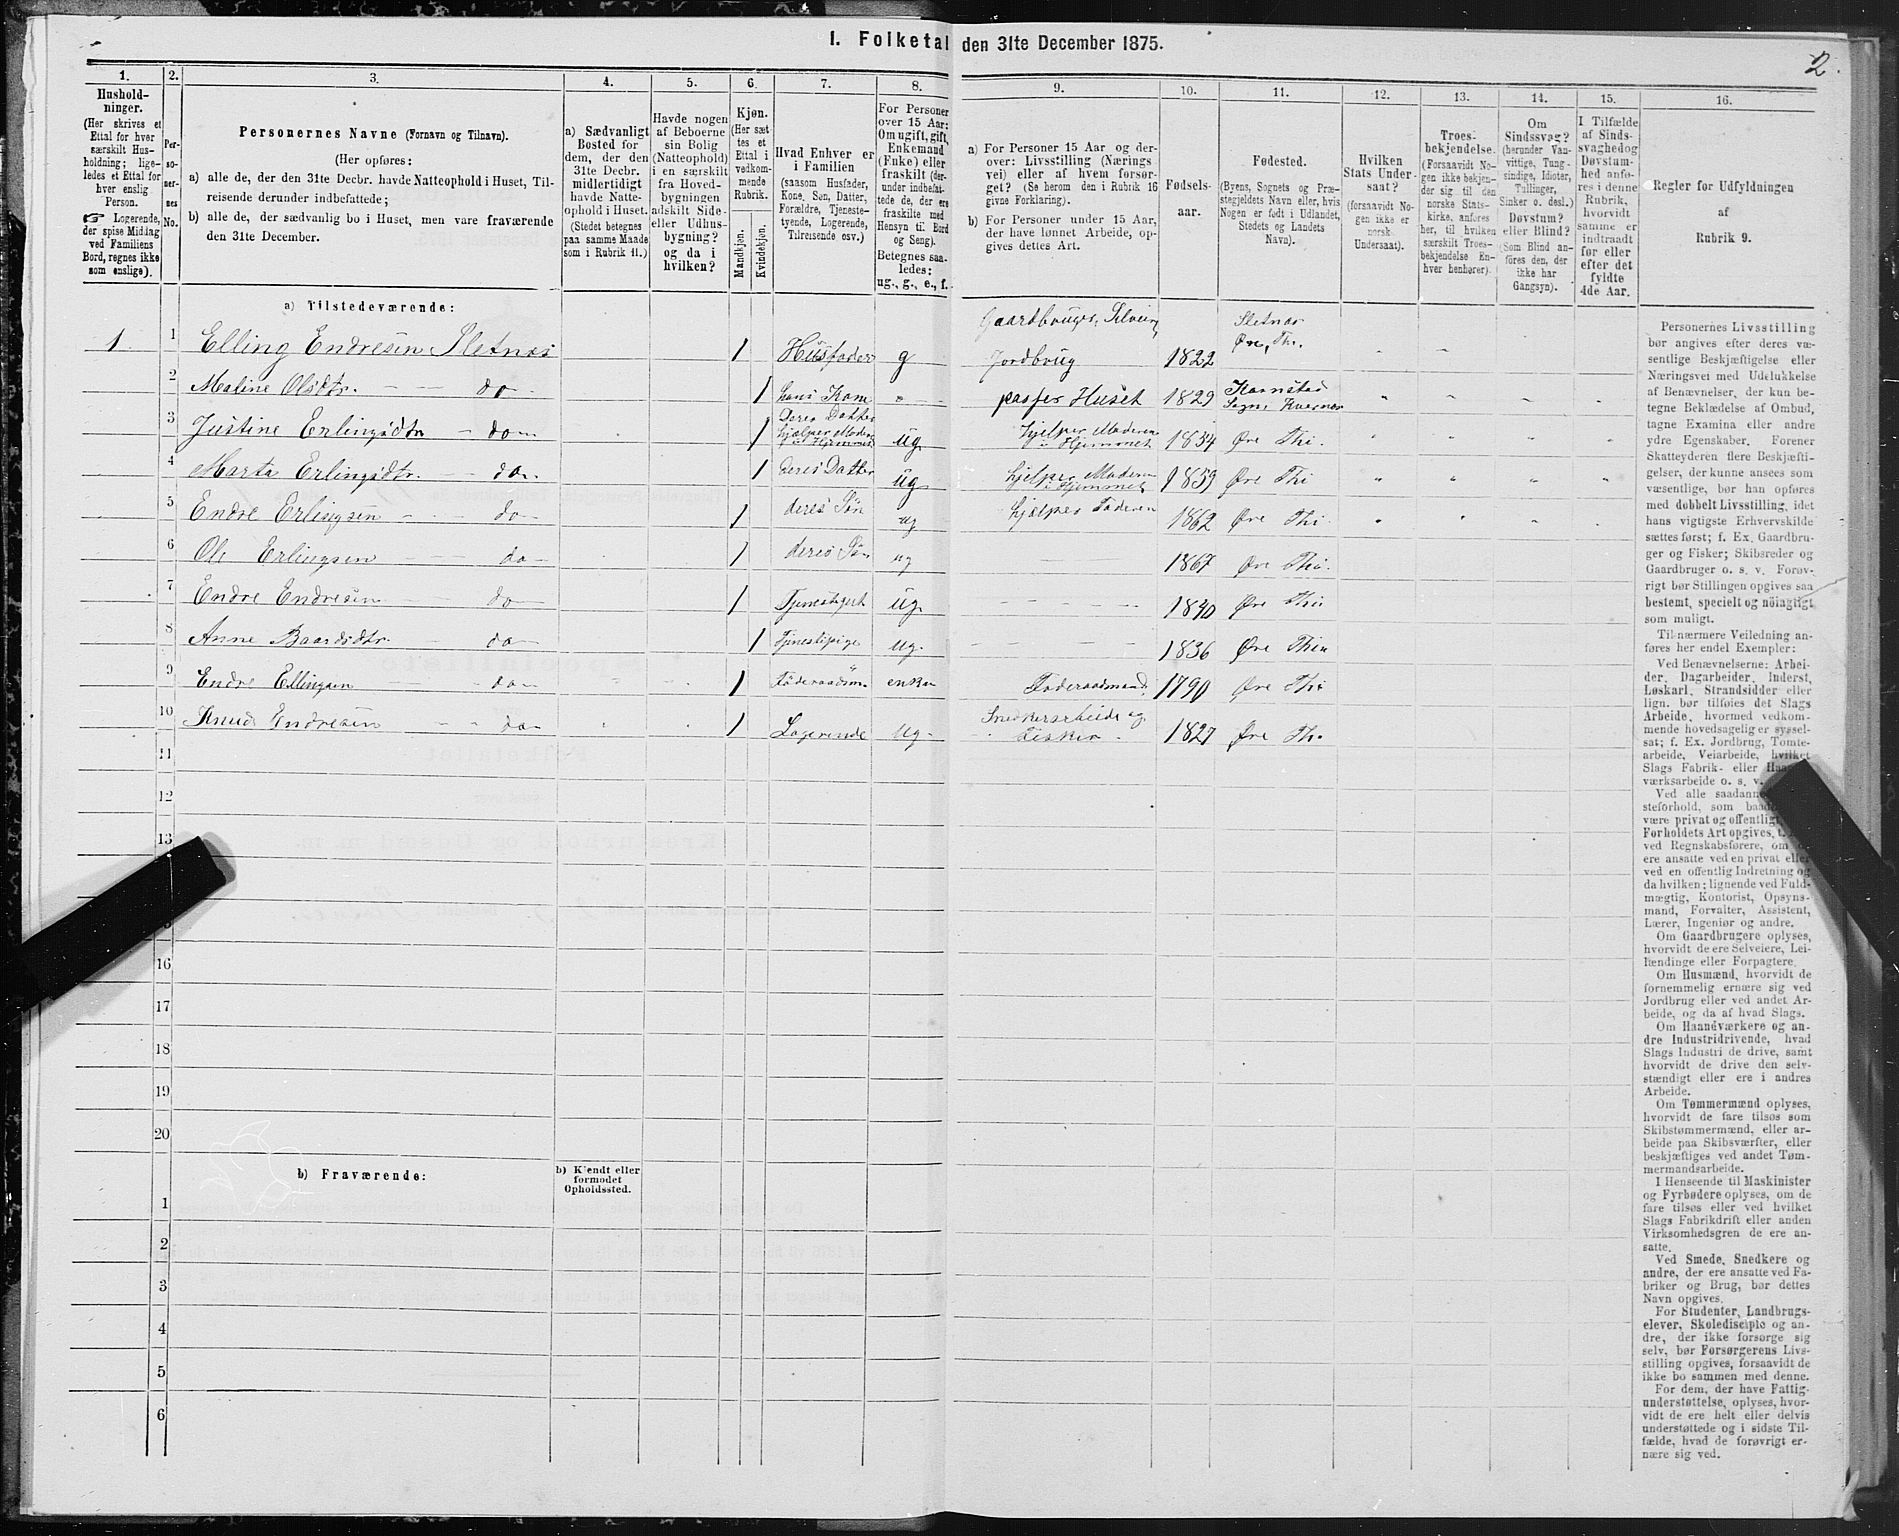 I. Folketal den 31te December 1875.
2.
1.
Hushold-
ninger.
(Her skrives et
Ettal for hver
særskilt Hus-
holdning; lige-
ledes et Ettal for
hver enslig
Person.
Logerende,
der spise Middag
ved Familiens
Bord, regnes ikke
som enslige).
2.
Per-
so-
ner-
nes
No.
3.
Personernes Navne (Fornavn og Tilnavn).
(Her opføres:
a) alle de, der den 31te Decbr. havde Natteophold i Huset, Til-
reisende derunder indbefattede;
b) alle de, der sædvanlig bo i Huset, men vare fraværende
den 31te December.
4.
a) Sædvanligt
Bosted for
dem, der den
31te Decbr.
midlertidigt
havde Natte-
ophold i Huset.
(Stedet betegnes
paa samme Maade
som i Rubrik 11.)
5.
Havde nogen
af Beboerne
sin Bolig
(Natteophold)
i en særskilt
fra Hoved-
bygningen
adskilt Side-
eller Udhus-
bygning?
og da i
hvilken?
6.
Kjøn.
(Her sæt-
tes et
Ettal i
vedkom-
mende
Rubrik.
Mandkjøn.
Kvindekjøn.
7.
Hvad Enhver er
i Familien
(saasom Husfader,
Kone, Søn, Datter,
Forældre, Tjeneste-
tyende, Logerende,
Tilreisende osv.)
8.
For Personer
over 15 Aar:
Om ugift, gift,
Enkemand
(Enke) eller
fraskilt (der-
under indbefat-
tede de, der ere
fraskilte med
Hensyn til Bord
og Seng).
Betegnes saa-
ledes:
ug., g., e., f.
9.
a) For Personer 15 Aar og der-
over: Livsstilling (Nærings
vei) eller af hvem forsør-
get? (Se herom den i Rubrik 16
givne Forklaring).
b) For Personer under 15 Aar,
der have lønnet Arbeide, op-
gives dettes Art.
10.
Fødsels-
aar.
11.
Fødested.
(Byens, Sognets og Præ-
stegjeldets Navn eller, hvis
Nogen er født i Udlandet,
Stedets og Landets
Navn).
12.
Hvilken
Stats Under-
saat?
(forsaavidt No-
gen ikke er
norsk
Undersaat).
13.
Troes-
bekjendelse.
(Forsaavidt No-
gen ikke bekjen-
der sig til den
norske Stats-
kirke, anføres
her, til hvilken
særskilt Troes-
bekjendelse En-
hver henhører).
14.
Om
Sindssvag?
(herunder Van-
vittige, Tung-
sindige, Idioter,
Tullinger,
Sinker o. desl.)
Døvstum?
eller Blind?
(Som Blind an-
føres den, der
ikke har
Gangsyn).
15.
I Tilfælde
af Sinds-
svaghed og
Døvstum-
hed anfø-
res i denne
Rubrik,
hvorvidt
samme er
indtraadt
før eller
efter det
fyldte
4de Aar.
16.
Regler for Udfyldningen
af
Rubrik 9.
a) Tilstedeværende:
1 1 Elling Endresen Sletnæs 1 Husfader g Gaardbruger, Jordbrug 1822 Sletnæs Øre, Thi.
2 Maline Olsdtr. do 1 hans Kone " passer Huset 1829 Kornstad Sogn, Kvernæs
3 Justine Erlingsdtr do 1 Deres Datter hjælper Moderen i Hjemmet ug hjelper Moderen i Hjemmet 1854 Øre Thi.
4 Marta Erlingsdtr. do. 1 deres Datter ug hjelper Moderen i Hjemmet 1859 Øre Thi
5 Endre Erlingsen do 1 deres Søn ug hjælper Faderen 1862 Øre Thi
6 Ole Erlingsen do 1 deres Søn ug 1867 Øre Thi.
7 Endre Endresen do 1 Tjenestegert ug. 1830 Øre Thi
8 Anne Baardsdtr. do 1 Tjenestepige ug. 1836 Øre Thi
9 Endre Ellingsen do 1 Føderaadsm. enkem Føderaadsmand 1790 Øre Thi
10 Knud Endresen do 1 Logerende ug. Snedkerarbeide og Fisker 1827 Øre Thi
11
12
13
16
17
18
19
20
b) Fraværende:
b) Kjendt eller
formodet
Opholdssted.
1
2
3
4
5
6
Personernes Livsstilling
bør angives efter deres væ-
sentlige Beskjæftigelse eller
Næringsvei med Udelukkelse
af Benævnelser, der kun be-
tegne Beklædelse af Ombud,
tagne Examina eller andre
ydre Egenskaber. Forener
Skatteyderen flere Beskjæfti-
gelser, der kunne ansees som
væsentlige, bør han opføres
med dobbelt Livsstilling, idet
hans vigtigste Erhvervskilde
sættes først; f. Ex. Gaardbru-
ger og Fisker; Skibsreder og
Gaardbruger o. s. v. Forøv-
rigt bør Stillingen opgives saa
bestemt, specielt og nöiagtigt
som muligt.
Til nærmere Veiledning an-
føres her endel Exempler:
Ved Benævnelserne: Arbei-
der, Dagarbeider, Inderst,
Løskarl, Strandsidder eller
lign. bør tilføies det Slags
Arbeide, hvormed vedkom-
mende hovedsagelig er syssel-
sat; f. Ex. Jordbrug, Tomte-
arbeide, Veiarbeide, hvilket
Slags Fabrik- eller
værksarbeide o. s. v.
Ved alle saadanne
steforhold, som
være privat og offentlig,
Forholdets Art opgives,
ved Regnskabsførere, om
ere ansatte ved en privat eller
ved en offentlig Indretning og
da hvilken; lignende ved Fuld-
mægtig, Kontorist, Opsyns-
mand, Forvalter, Assistent,
Lærer, Ingeniør og andre.
Om Gaardbrugere oplyses,
hvorvidt de ere Selveiere, Lei-
lændinge eller Forpagtere.
Om Husmænd, hvorvidt de
fornemmelig ernære sig ved
Jordbrug eller ved andet Ar-
beide, og da af hvad Slags.
Om Haandværkere og an-
dre Industridrivende, hvad
Slags Industri de drive, samt
hvorvidt de drive den selv-
stændigt eller ere i andres
Arbeide.
Om Tømmermænd oplyses,
hvorvidt de fare tilsøs som
Skibstømmermænd, eller ar-
beide paa Skibsværfter, eller
beskjæftiges ved andet Tøm-
mermandsarbeide.
I Henseende til Maskinister
og Fyrbødere oplyses, om de
fare tilsøs eller ved hvilket
Slags Fabrikdrift eller anden
Virksomhedsgren de ere an-
satte.
Ved Smede, Snedkere og
andre, der ere ansatte ved Fa-
briker og Brug, bør dettes
Navn opgives.
For Studenter, Landbrugs-
elever, Skoledisciple og an-
dre, der ikke forsørge sig
selv, bør Forsørgerens Livs-
stilling opgives, forsaavidt de
ikke bo sammen med denne.
For dem, der have Fattig-
understøttelse, oplyses, hvor-
vidt de ere helt eller delvis
understøttede og i sidste Til-
fælde, hvad de forøvrigt er-
nære sig ved.